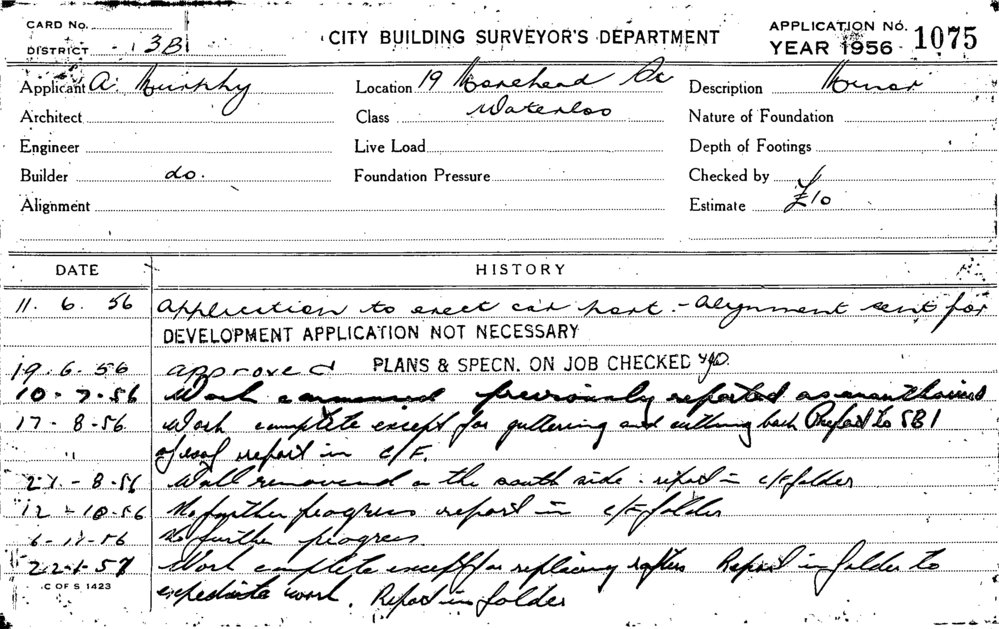 CARD No.
DISTRICT 3B1
CITY BUILDING SURVEYOR'S DEPARTMENT
APPLICATION No. 1075
YEAR 1956
Applicant A. Murphy
Location 19 Morehead St
Description Minor
Architect
Class Waterloo
Nature of Foundation
Engineer
Live Load
Depth of Footings
Builder do.
Foundation Pressure
Checked by
Alignment
Estimate £10
DATE
HISTORY
11. 6. 56 Application to erect car port - Alignment sent for
DEVELOPMENT APPLICATION NOT NECESSARY
19. 6. 56 approved PLANS & SPECN. ON JOB CHECKED
10-7-56 Work commenced previously reported as
17-8-56 Work complete except for guttering and cutting back Report to SBI
" of roof report in c/F.
27-8-56 Wall removed on the south side - report in c/F folder
12-10-56 No further progress report in c/F folder
6-11-56 No further progress
22-1-57 Work complete except for replacing rafters Report in folder to
expedite work. Report in folder
C OF S 1423